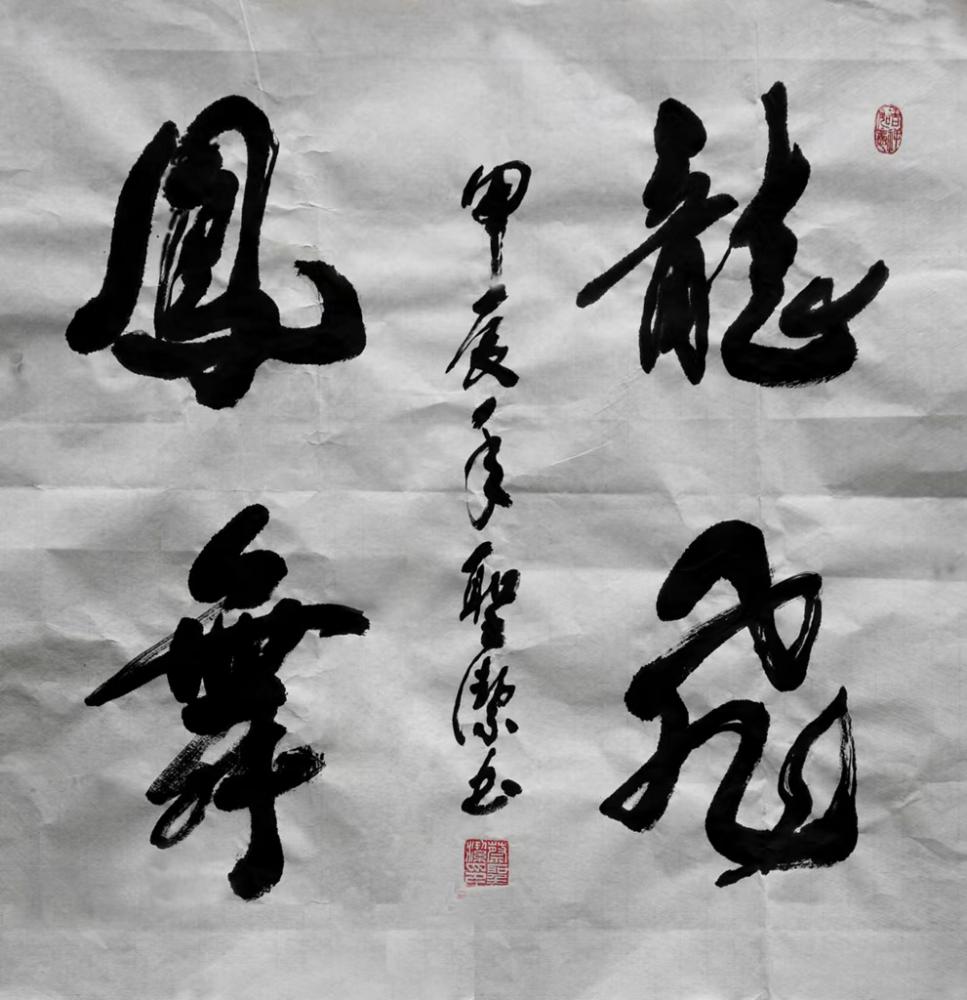 龍飛
鳳舞
甲辰年聖潔书